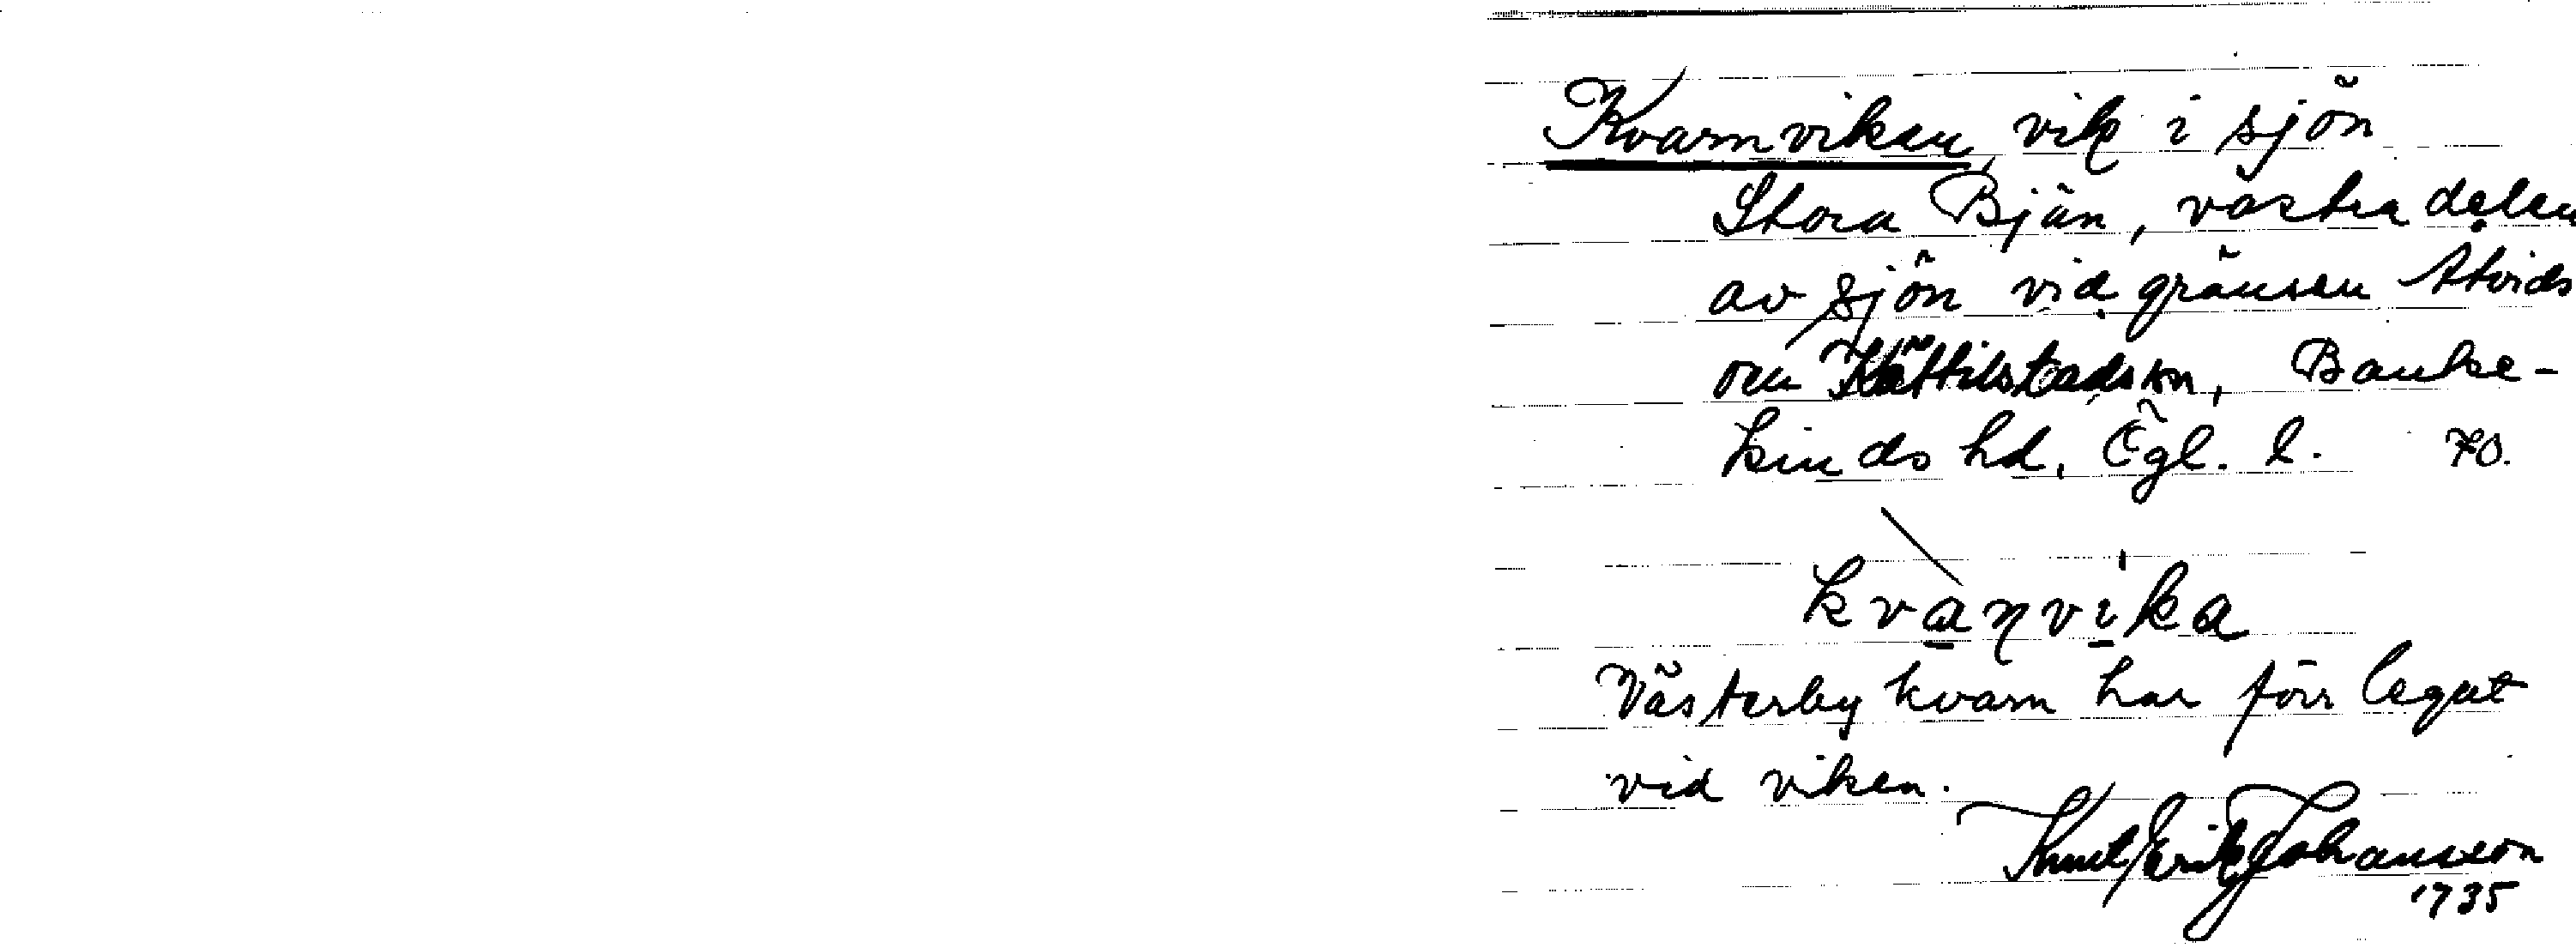 Kvarnviken, vik i sjön
Stora Bjän, västra delen
av sjön vid gränsen Åtvids
om Kättilstads sn, Banke-
kinds hd, Ögl. l. 70.
kvanvika
Västerby kvarn har förr legat
vid viken.
Knut Erik Johansson
1935